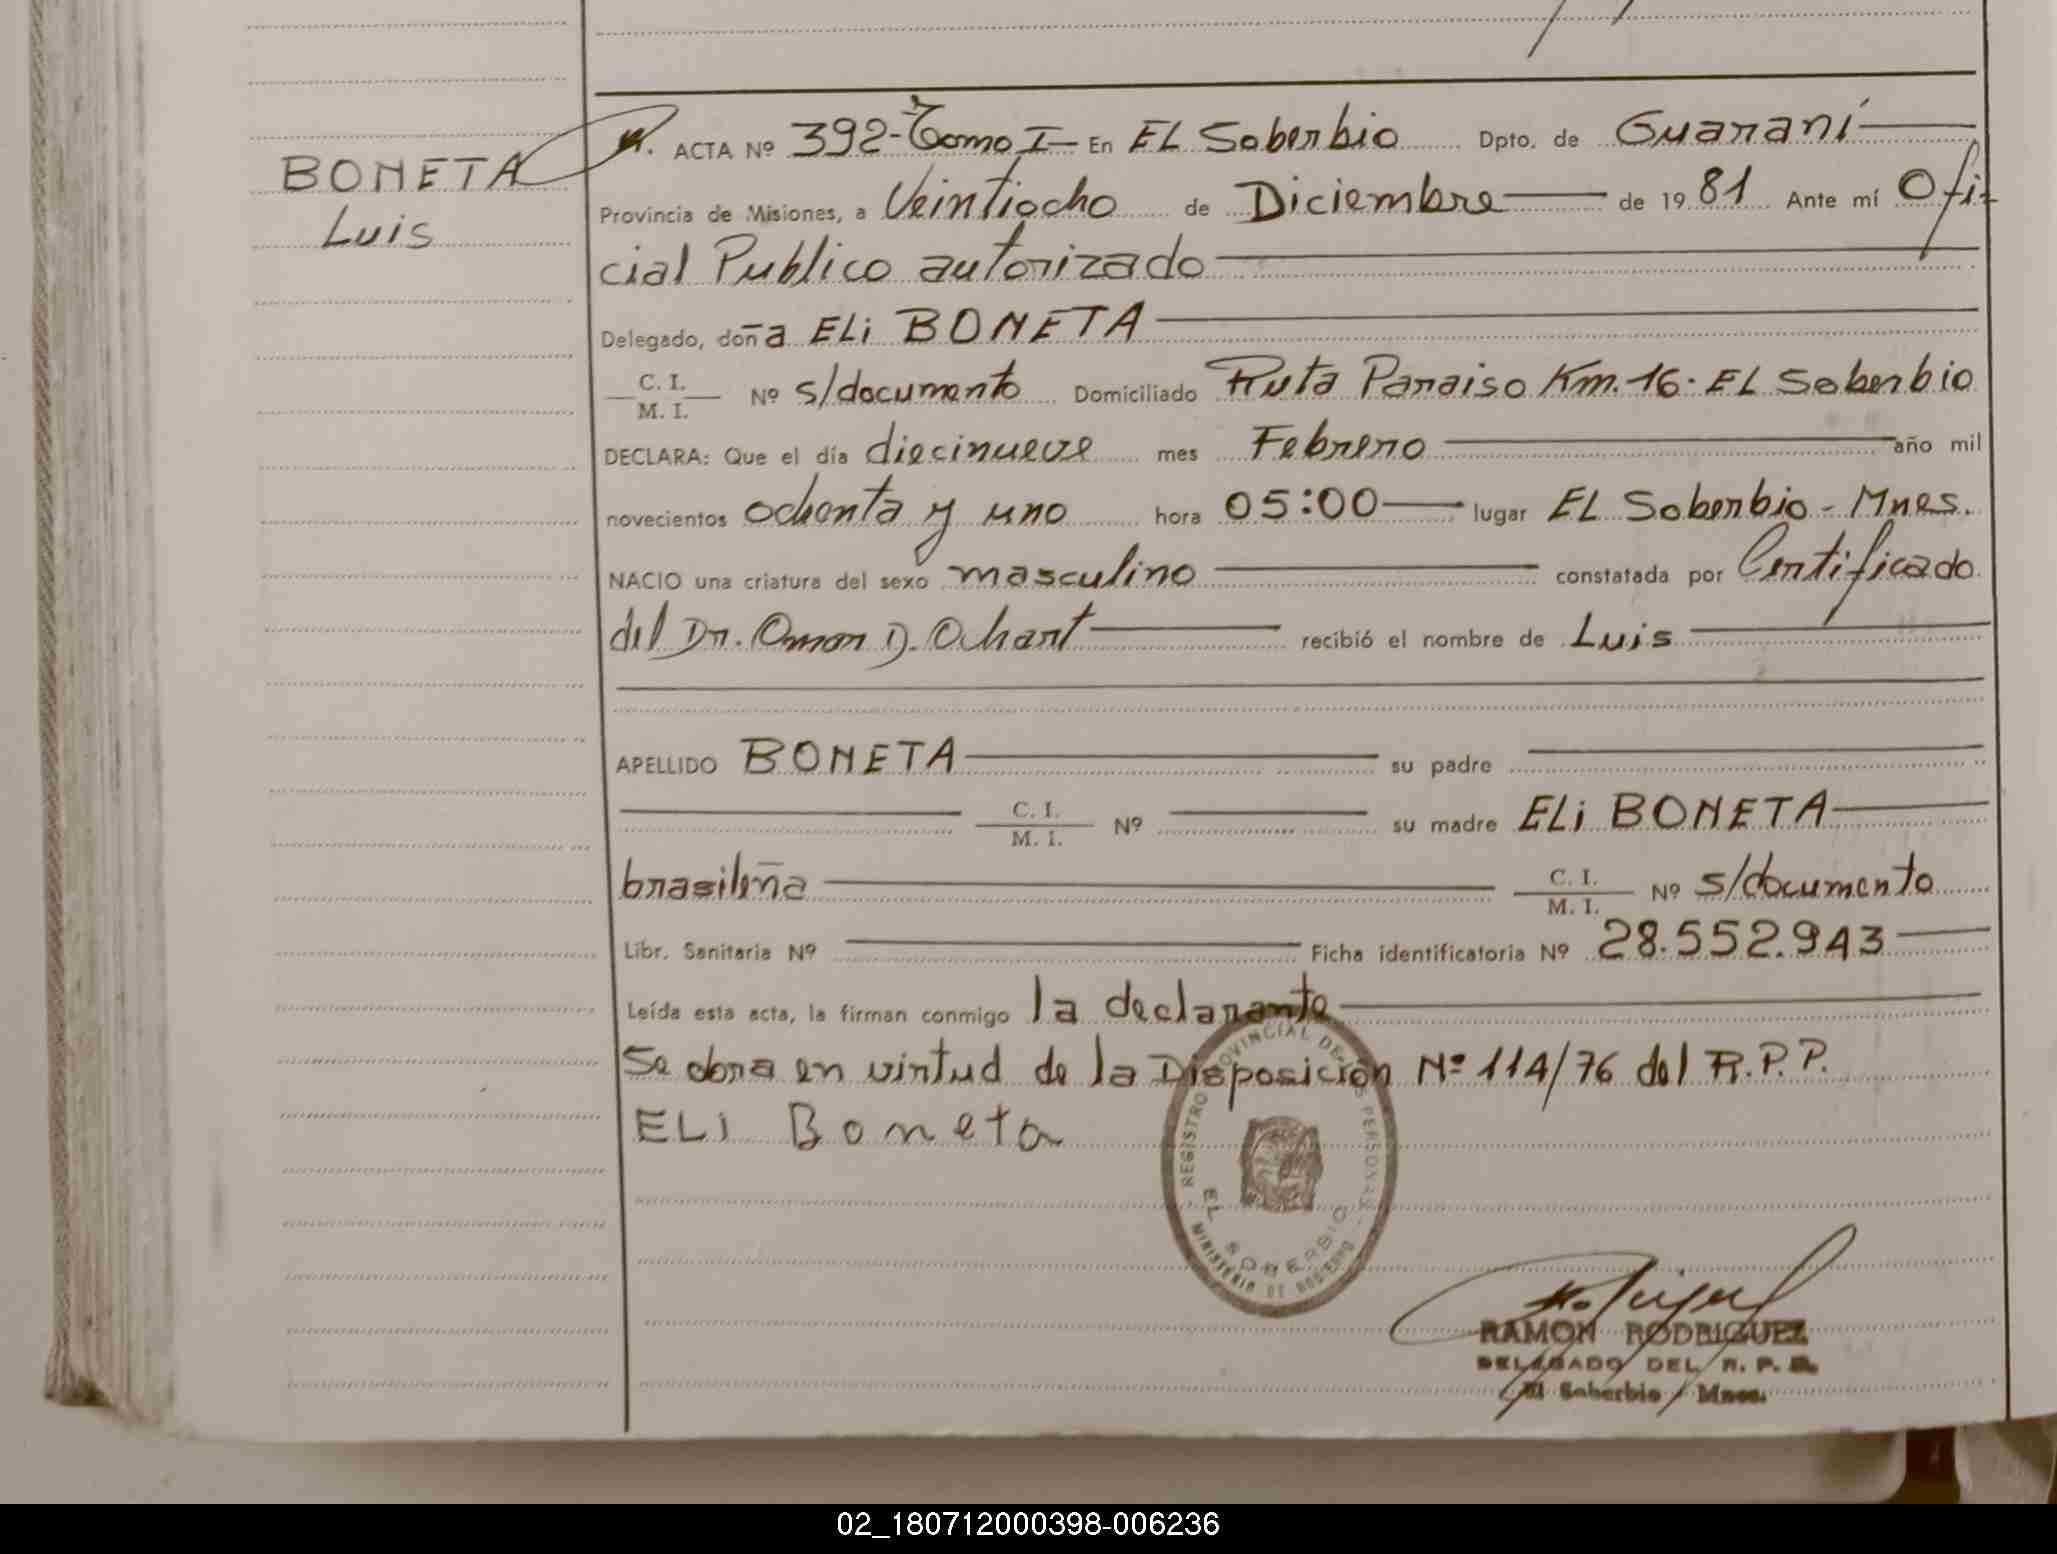 BONETA
Luis
ACTA Nº 392-Tomo I- En EL Soberbio Dpto. de Guaraní
Provincia de Misiones, a Veintiocho de Diciembre de 19 81 Ante mí Ofi-
cial Publico autorizado
Delegado, doña ELi BONETA
C. I.
M. I. Nº s/documento Domiciliado Ruta Paraiso Km. 16. EL Soberbio
DECLARA: Que el día diecinueve mes Febrero año mil
novecientos ochenta y uno hora 05:00 lugar EL Soberbio - Mnes.
NACIO una criatura del sexo masculino constatada por Certificado
del Dr. Omar D. Ochart recibió el nombre de Luis
APELLIDO BONETA su padre
C. I.
M. I. Nº su madre ELi BONETA
brasileña C. I.
M. I. Nº s/documento
Libr. Sanitaria Nº Ficha identificatoria Nº 28.552.943
Leída esta acta, la firman conmigo la declarante
Se obra en virtud de la Disposición Nº 114/76 del R.P.P.
ELi Boneta
REGISTRO PROVINCIAL DE LAS PERSONAS
EL SOBERBIO
MINISTERIO DE GOBIERNO
RAMON RODRIGUEZ
DELEGADO DEL R. P. P.
El Soberbio - Mnes.
02_180712000398-006236